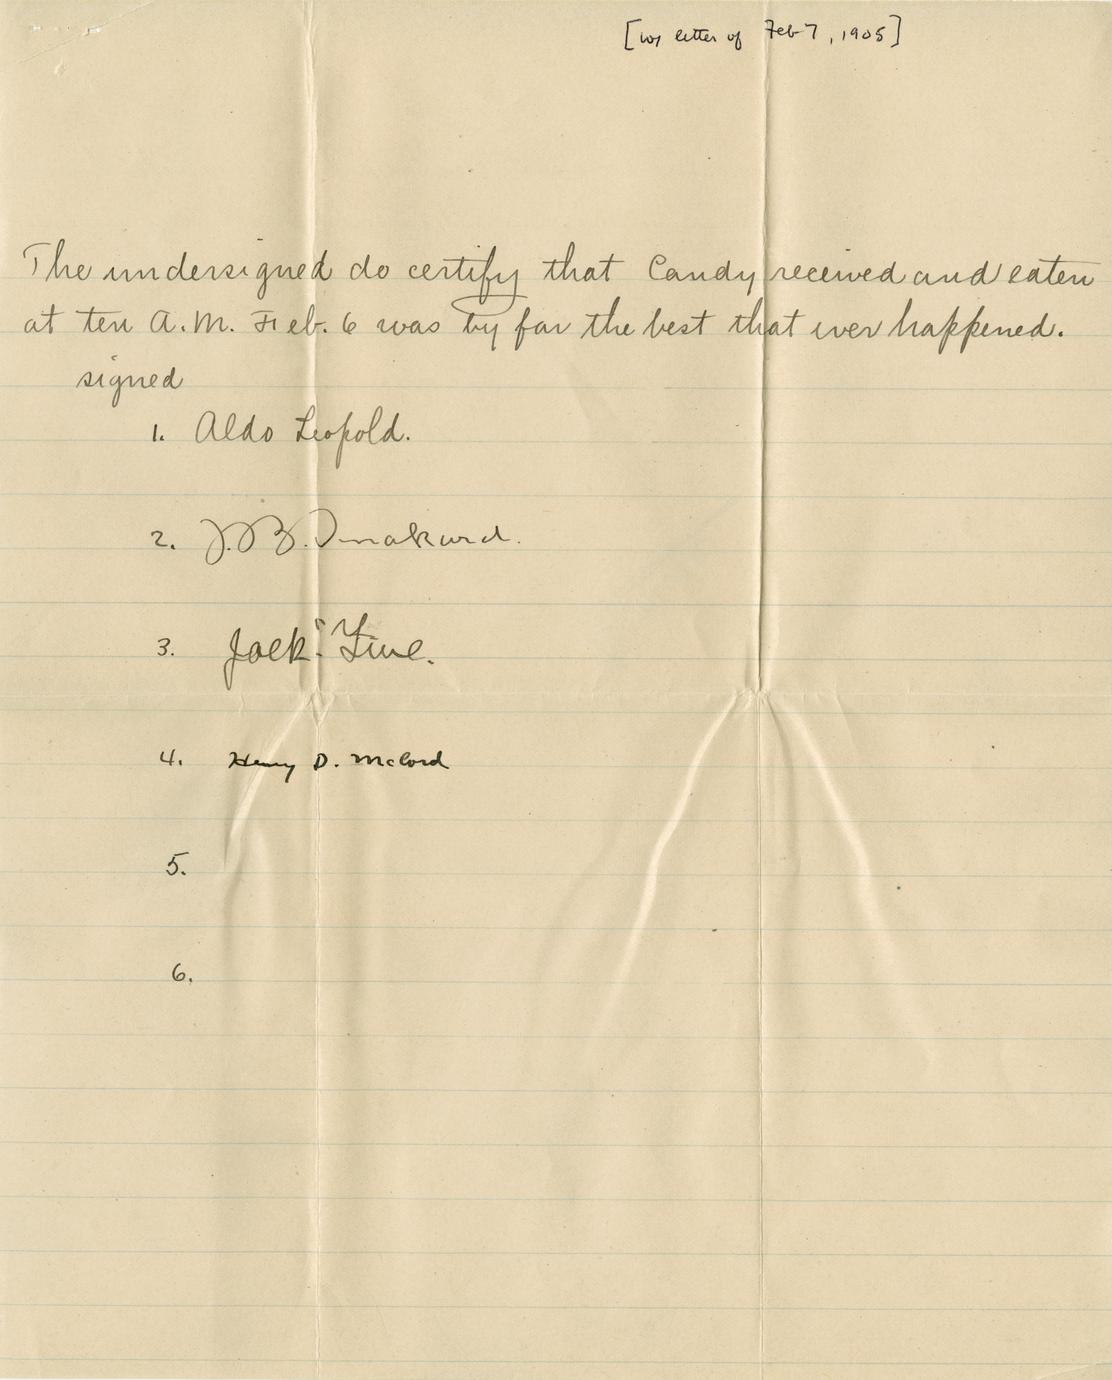 [w/ letter of Feb 7, 1905]
The undersigned do certify that Candy received and eaten
at ten A.M. Feb. 6 was by far the best that ever happened.
signed
1. Aldo Leopold.
2. J. B.
3. "Jack"
4. Henry D. McCord
5.
6.